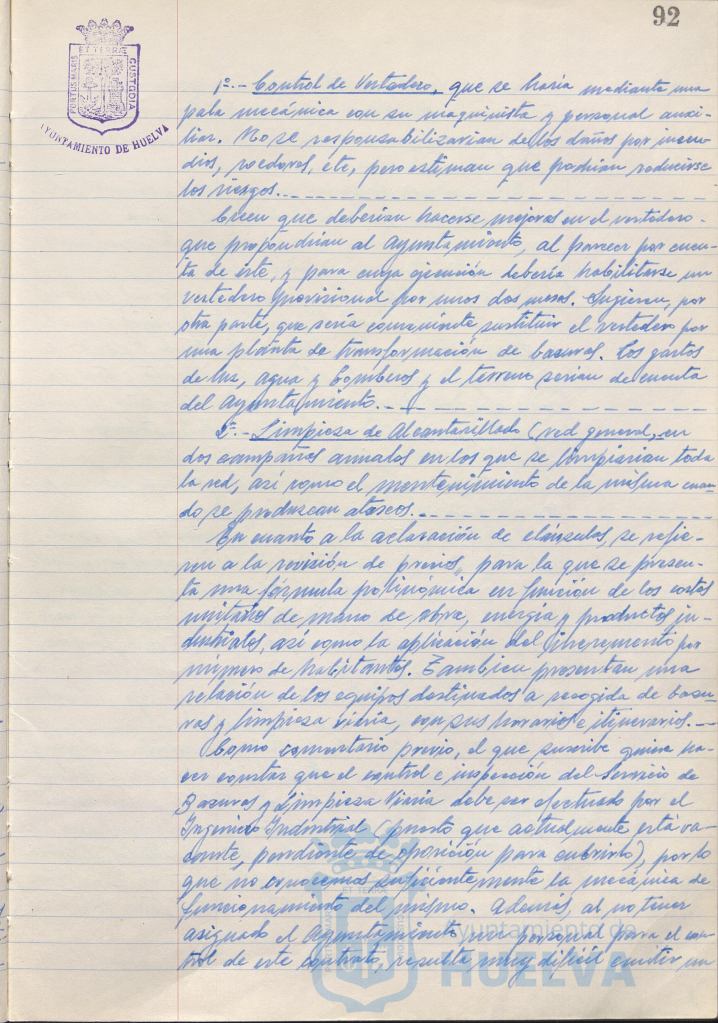 92
PORTUS MARIS ET TERRÆ CUSTODIA
AYUNTAMIENTO DE HUELVA
1º.- Control de Vertedero, que se haría mediante una
pala mecánica con su maquinista y personal auxi-
liar. No se responsabilizarian de los daños por incen-
dios, roedores, etc, pero estiman que podrian reducirse
los riesgos.
Creen que deberían hacerse mejoras en el vertedero
que propondrian al Ayuntamiento, al parecer por cuen-
ta de éste, y para cuya ejecución debería habilitarse un
vertedero provisional por unos dos meses. Sugieren, por
otra parte, que sería conveniente sustituir el vertedero por
una planta de transformación de basuras. Los gastos
de luz, agua y bomberos y el terreno serian de cuenta
del Ayuntamiento.
2º.- Limpieza de Alcantarillado (red general, en
dos campañas anuales en los que se limpiarian toda
la red, así como el mantenimiento de la misma cuan-
do se produzcan atascos.
En cuanto a la aclaración de cláusulas, se refie-
ren a la revisión de precios, para la que se presen-
ta una fórmula polinómica en función de los costos
unitarios de mano de obra, energía y productos in-
dustriales, así como la aplicación del incremento por
número de habitantes. Tambien presentan una
relación de los equipos destinados a recogida de basu-
ras y limpieza viaria, con sus horarios e itinerarios.
Como comentario previo, el que suscribe quiere ha-
cer constar que el control e inspección del Servicio de
Basuras y Limpieza Viaria debe ser efectuado por el
Ingeniero Industrial (puesto que actualmente está va-
cante, pendiente de oposición para cubrirlo), por lo
que no conocemos suficientemente la mecánica de
funcionamiento del mismo. Además, al no tener
asignado el Ayuntamiento personal para el con-
trol de este contrato, resulta muy dificil emitir un
Ayuntamiento de
HUELVA